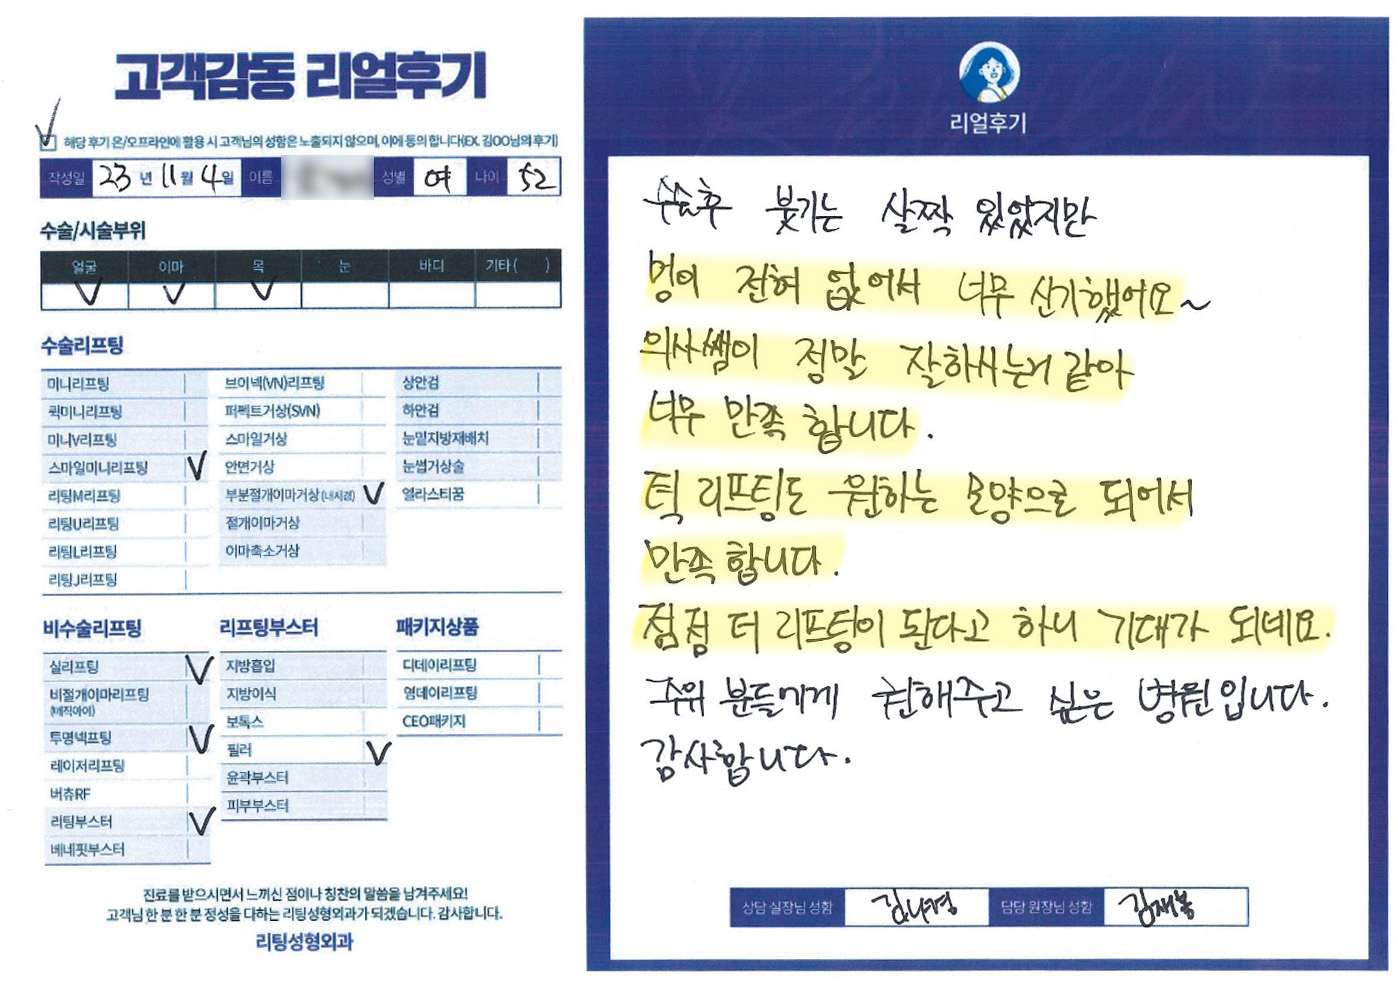 고객감동 리얼후기
해당 후기 온/오프라인에 활용 시 고객님의 성함은 노출되지 않으며, 이에 동의 합니다(EX. 김OO님의 후기)
작성일 23 년 11 월 4 일 이름 성별 여 나이 52
수술/시술부위
얼굴 이마 목 눈 바디 기타( )
수술리프팅
미니리프팅
퀵미니리프팅
미니V리프팅
스마일미니리프팅
리팅M리프팅
리팅U리프팅
리팅L리프팅
리팅J리프팅
브이넥(VN)리프팅
퍼펙트거상(SVN)
스마일거상
안면거상
부분절개이마거상 (내시경)
절개이마거상
이마축소거상
상안검
하안검
눈밑지방재배치
눈썹거상술
엘라스티꿈
비수술리프팅
실리프팅
비절개이마리프팅
(매직아이)
투명넥프팅
레이저리프팅
버츄RF
리팅부스터
베네핏부스터
리프팅부스터
지방흡입
지방이식
보톡스
필러
윤곽부스터
피부부스터
패키지상품
디데이리프팅
영데이리프팅
CEO패키지
진료를 받으시면서 느끼신 점이나 칭찬의 말씀을 남겨주세요!
고객님 한 분 한 분 정성을 다하는 리팅성형외과가 되겠습니다. 감사합니다.
리팅성형외과
리얼후기
수술후 붓기는 살짝 있었지만
멍이 전혀 없어서 너무 신기했어요~
의사쌤이 정말 잘하시는거 같아
너무 만족 합니다.
턱 리프팅도 원하는 모양으로 되어서
만족 합니다.
점점 더 리프팅이 된다고 하니 기대가 되네요.
주위 분들에게 권해주고 싶은 병원입니다.
감사합니다.
상담 실장님 성함 김나경 담당 원장님 성함 김재봉